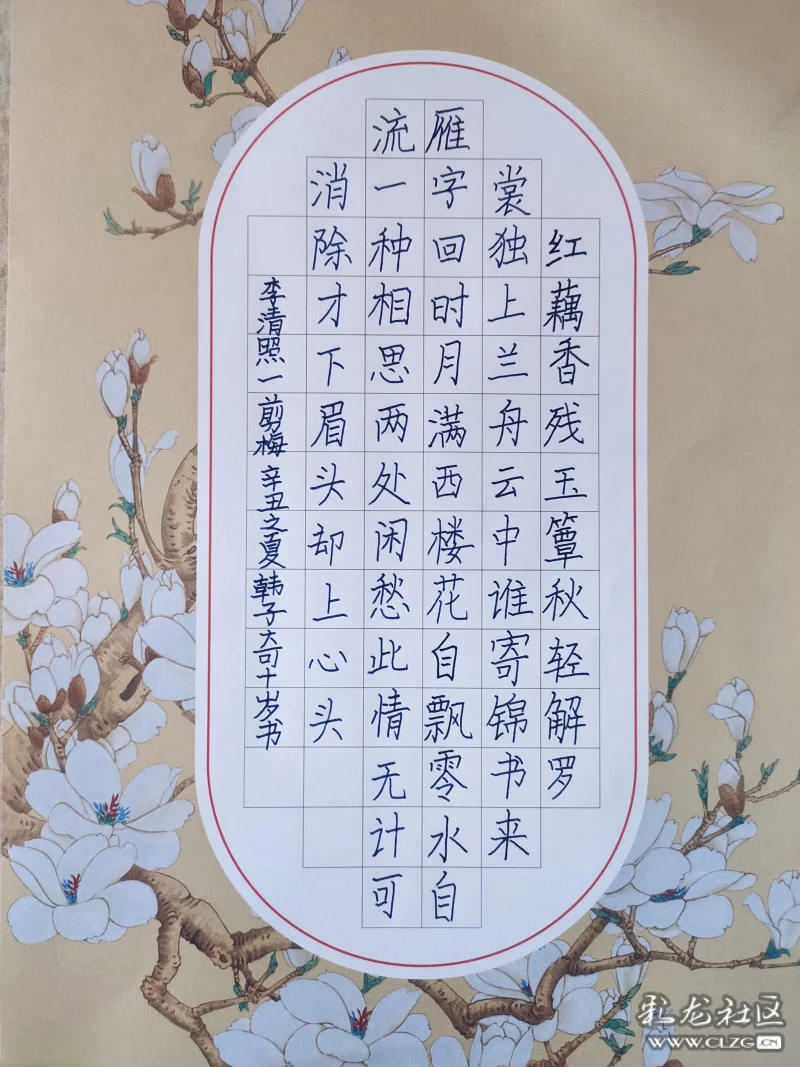 红藕香残玉簟秋轻解罗
裳独上兰舟云中谁寄锦书来
雁字回时月满西楼花自飘零水自
流一种相思两处闲愁此情无计可
消除才下眉头却上心头
李清照一剪梅辛丑之夏韩子奇十岁书
彩龙社区
WWW.CLZG.CN